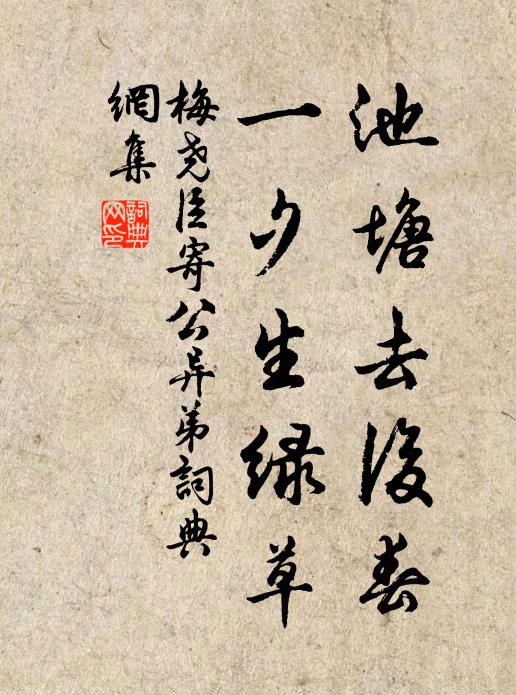 池塘去後春
一夕生绿草
梅尧臣寄公异弟詞典
網集
詞典
网印